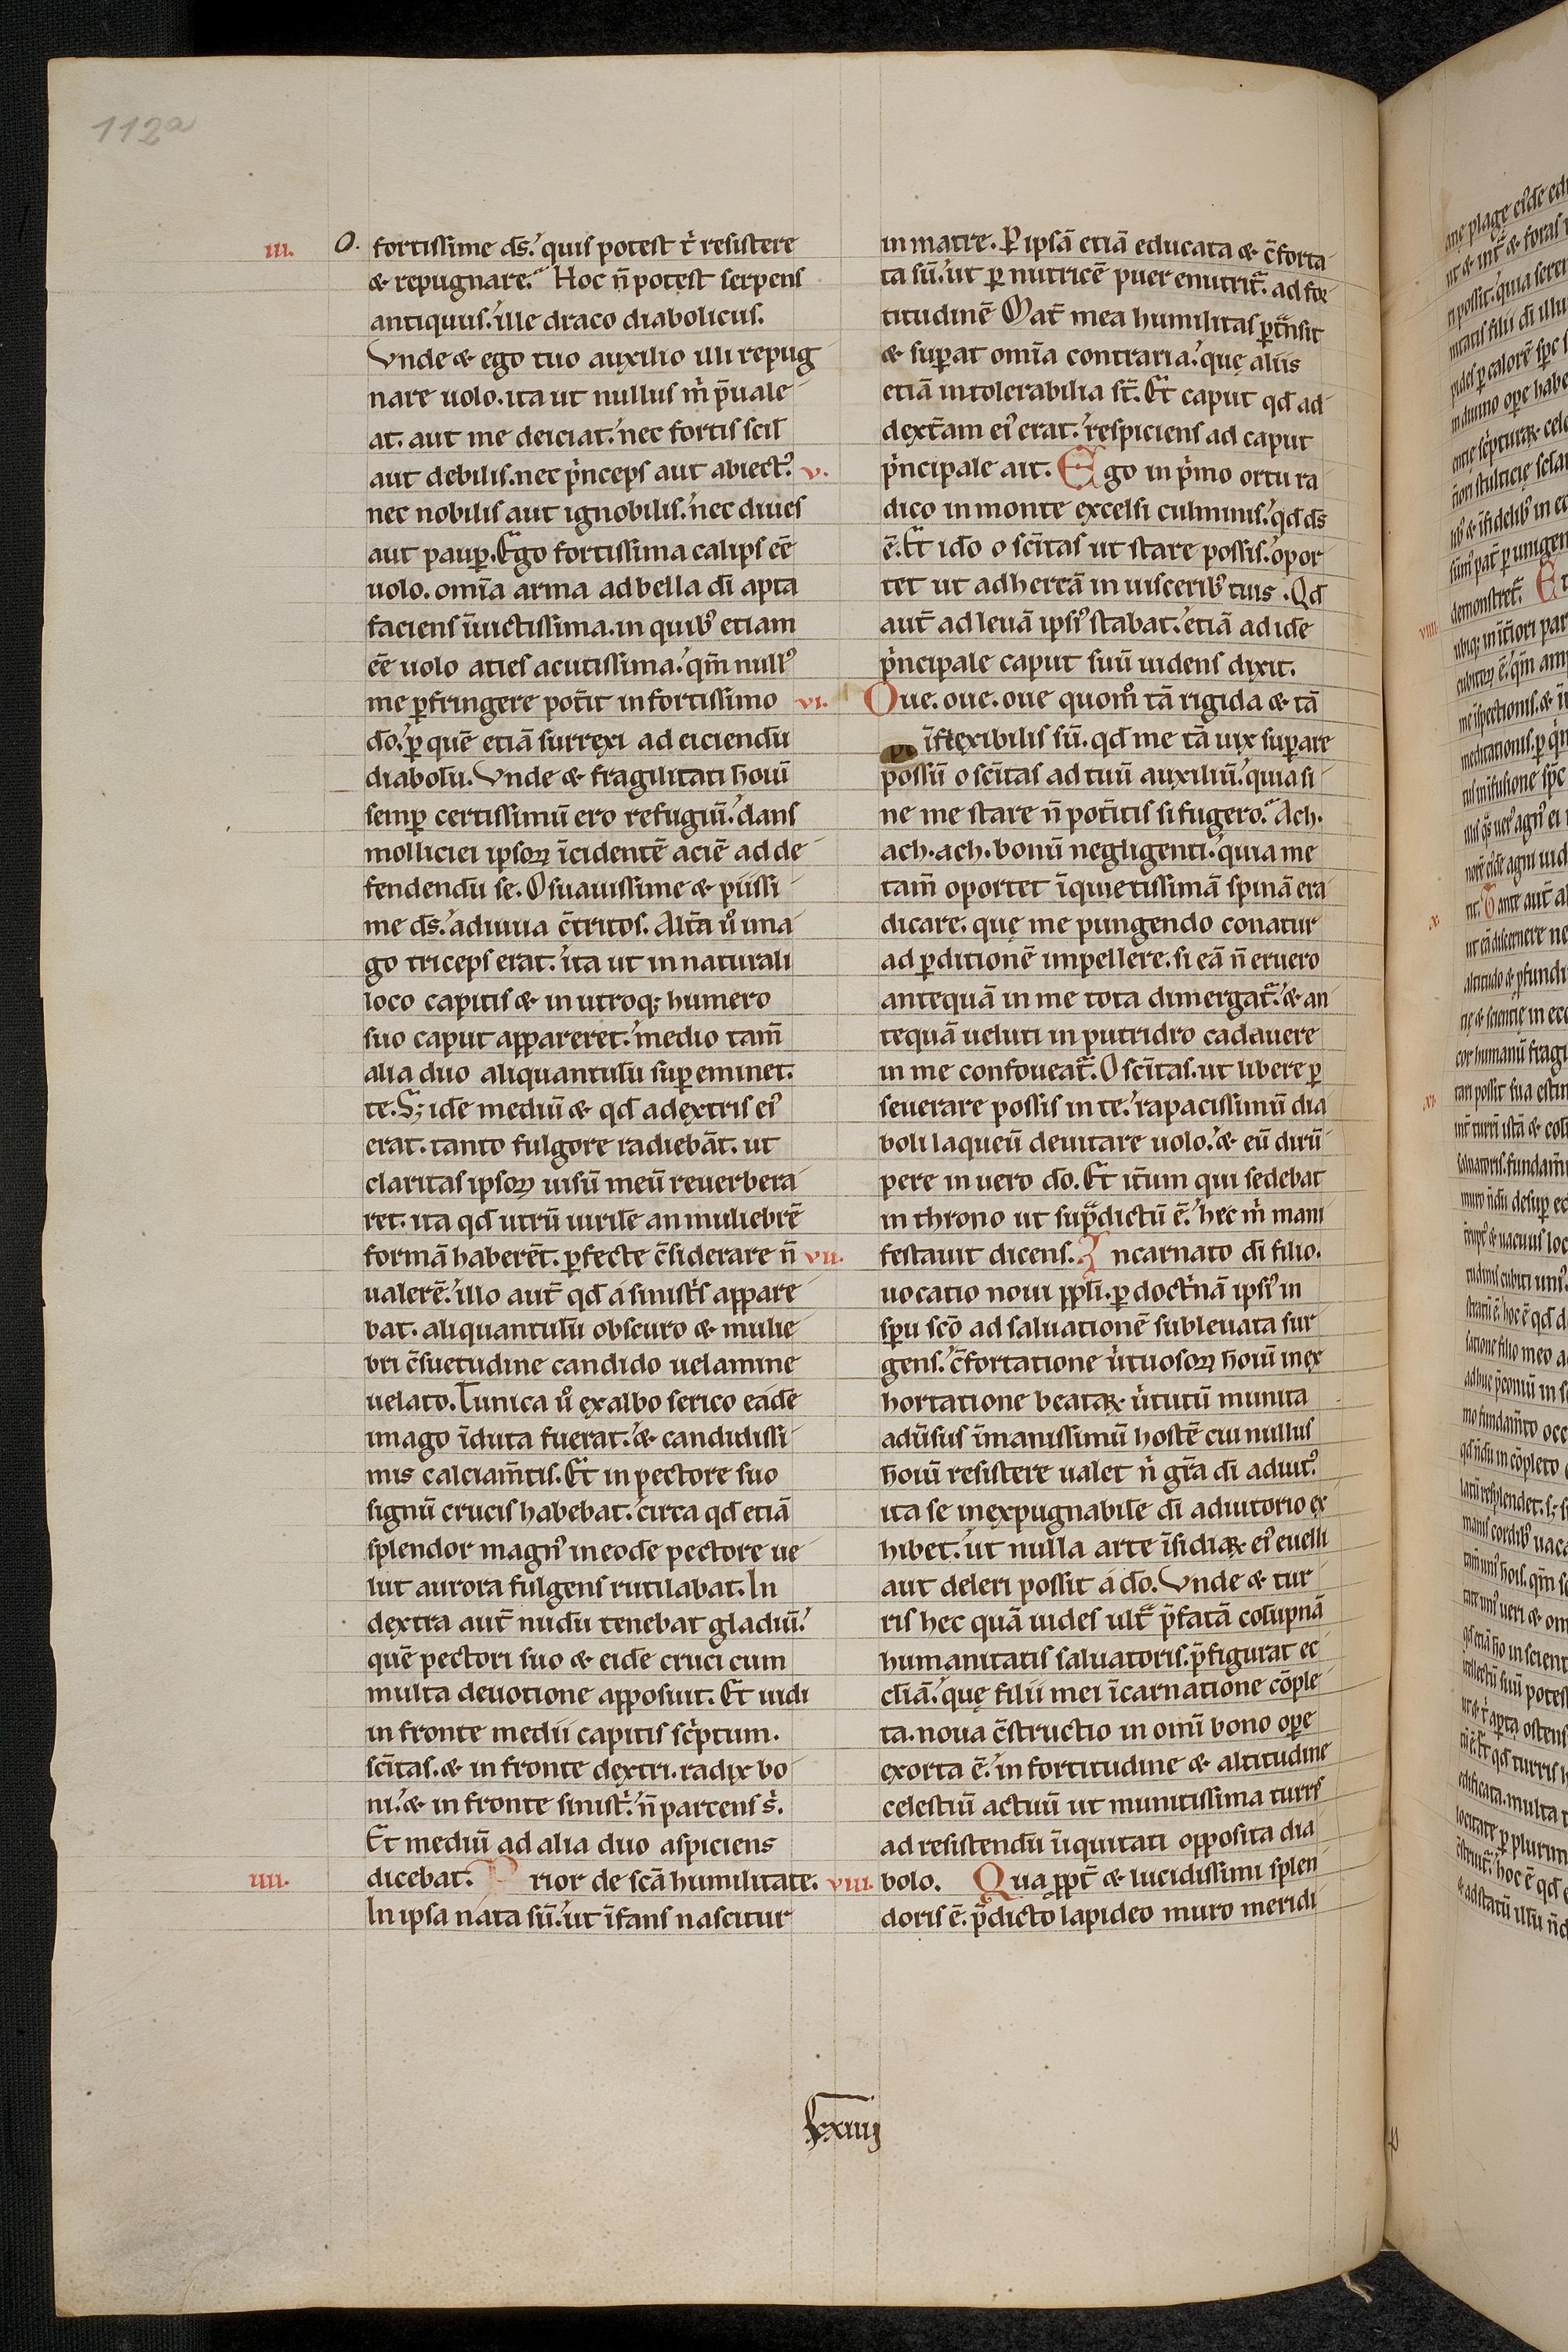 112a
III. O. fortissime ds̄. quis potest t̓ resistere
& repugnare. Hoc n̄ potest serpens
antiquus. ille draco diabolicus.
Vnde & ego tuo auxilio illi repug
nare uolo. ita ut nullus m̓ p̄uale
at. aut me deiciat. nec fortis scil̄
aut debilis. nec p̓nceps aut abiectꝰ.
nec nobilis aut ignobilis. nec diues
aut paup̲. Ego fortissima calips eē
uolo. omīa arma ad bella dī apta
faciens īuictissima. in quibꝰ etiam
eē uolo acies acutissima. qm̄ nullꝰ
me ꝑfringere pot̄it in fortissimo
dō. ꝑ quē etiā surrexi ad eiciendū
diabolū. Vnde & fragilitati hoıū
semꝑ certissimū ero refugiū. dans
molliciei ipsoꝝ īcidentē aciē ad de
fendendū se. O suauissime & piissi
me ds̄. adiuua c̄tritos. Alt̄a u̓o ima
go triceps erat. ita ut in naturali
loco capitis & in utroq; humero
suo caput appareret. medio tam̄
alia duo aliquantulū suꝑeminet.
te. S; idē mediū & qd̄ a dextris eiꝰ
erat. tanto fulgore radiebāt. ut
claritas ipsoꝝ uisū meū reuerbera
ret. ita qd̄ utrū uirilē an muliebrē
formā haberēt. ꝑfecte c̄siderare n̄
ualerē. illo aut̄ qd̄ a sinist̓s appare
bat. aliquantulū obscuro & mulie
bri c̄suetudine candido uelamine
uelato. Tunica u̓o ex albo serico eadē
imago īduta fuerat. & candidissi
mis calciam̄tis. Et in pectore suo
signū crucis habebat. circa qd̄ etiā
splendor magnꝰ in eodē pectore ue
lut aurora fulgens rutilabat. In
dextra aut̄ nudū tenebat gladiū.
quē pectori suo & eidē cruci cum
multa deuotione apposuit. Et uidi
in fronte medii capitis sc̓ptum.
scīTas. & in fronte dextri. radix bo
ni. & in fronte sinist̓. n̄ parcens s̓.
Et mediū ad alia duo aspiciens
IIII. dicebat. Prior de scā humilitate.
In ipsa nata sū. ut īfans nascitur
in matre. P ipsā etiā educata & c̄forta
ta sū. ut ꝑ nutricē puer enutrit̄. ad for
titudinē Mat̄ mea humilitas ꝑt̄nsit
& suꝑat omīa contraria. quę aliis
etiā intolerabilia st̄. Et caput qd̄ ad
dext̄am eiꝰ erat. respiciens ad caput
V. p̓ncipale ait. Ego in p̓mo ortu ra
dico in monte excelsi culminis. qd̄ ds̄
ē. Et idō o scītas ut stare possis. opor
tet ut adhereā in uisceribꝰ tuis. Qd̄
aut̄ ad leuā ipsiꝰ stabat. etiā ad idē
p̓ncipale caput suū uidens dixit.
VI. Oue. oue. oue quom̊ tā rigida & tā
īflexibilis sū. qd̄ me tā uix suꝑare
possū o scītas ad tuū auxiliū. quia si
ne me stare n̄ pot̄itis si fugero. Ach.
ach. ach. bonū negligenti. quia me
tam̄ oportet īquietissimā spinā era
dicare. quę me pungendo conatur
ad ꝑditionē impellere. si eā n̄ eruero
antequā in me tota dimergat̄. & an
tequā ueluti in putridro cadauere
in me confoueat̄. O scītas. ut libere ꝑ
seuerare possis in te. rapacissimū dia
boli laqueū deuitare uolo. & eū dirū
pere in uero dō. Et it̄um qui sedebat
in throno ut sup̄dictū ē. hec m̓ mani
VII. festauit dicens. Incarnato dī filio.
uocatio noui ppl̄i. ꝑ doct̓nā ipsiꝰ in
spū scō ad saluationē subleuata sur
gens. c̄fortatione u̓tuosoꝝ hoıū in ex
hortatione beataꝝ u̓tutū munita
adūsus īmanissimū hostē cui nullus
hoıū resistere ualet n̓ gr̄a dī adiutꝰ.
ita se inexpugnabilē dī adiutorio ex
hibet. ut nulla arte īsidiaꝝ eiꝰ euelli
aut deleri possit a dō. Vnde & tur
ris hec quā uides ult̄ p̄fatā colūpnā
humanitatis saluatoris. p̄figurat ec
cl̄iā. quę filii mei īcarnatione cōple
ta. noua c̄structio in omī bono opere
exorta ē. in fortitudine & altitudine
celestiū actuū ut munitissima turris
ad resistendū īiquitati opposita dia
VIII. bolo. Qua ꝓpt̄ & lucidissimi splen
doris ē. p̄dicto lapideo muro meridi
lxxiiij